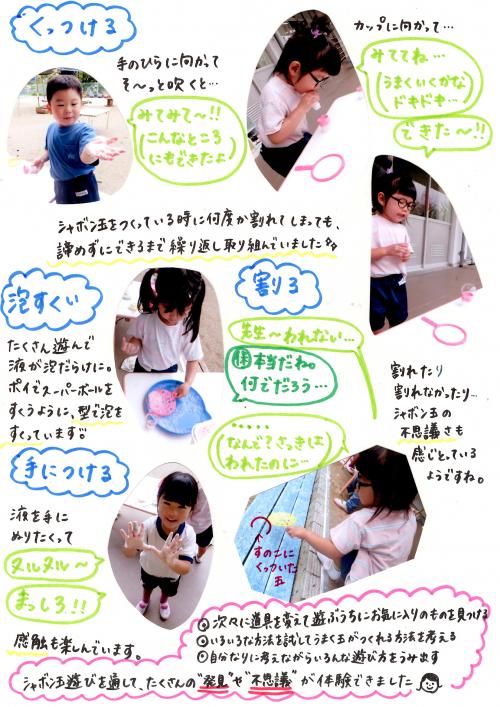 くっつける
手のひらに向かって
そ〜っと吹くと…
みてみて〜!!
(こんなところ
にもできたよ)
カップに向かって…
みててね…
(うまくいくかな
ドキドキ…)
できた〜!!
シャボン玉をつくっている時に何度か割れてしまっても、
諦めずにできるまで繰り返し取り組んでいました
泡すくい
たくさん遊んで
液が泡だらけに。
ポイでスーパーボールを
すくうように、型で泡を
すくっています
割る
先生〜われない…
本当だね。
何でだろう…
・・・・・
(なんで?さっきは
われたのに…)
割れたり
割れなかったり…
シャボン玉の
不思議さも
感じとっている
ようですね。
すのこに
くっついた
玉
手につける
液を手に
ぬりたくって
ヌルヌル〜
まっしろ!!
感触も楽しんでいます。
次々に道具を変えて遊ぶうちにお気に入りのものを見つける
いろいろな方法を試してうまく玉がつくれる方法を考える
自分なりに考えながらいろんな遊び方をうみ出す
シャボン玉遊びを通して、たくさんの"発見"や"不思議"が体験できました